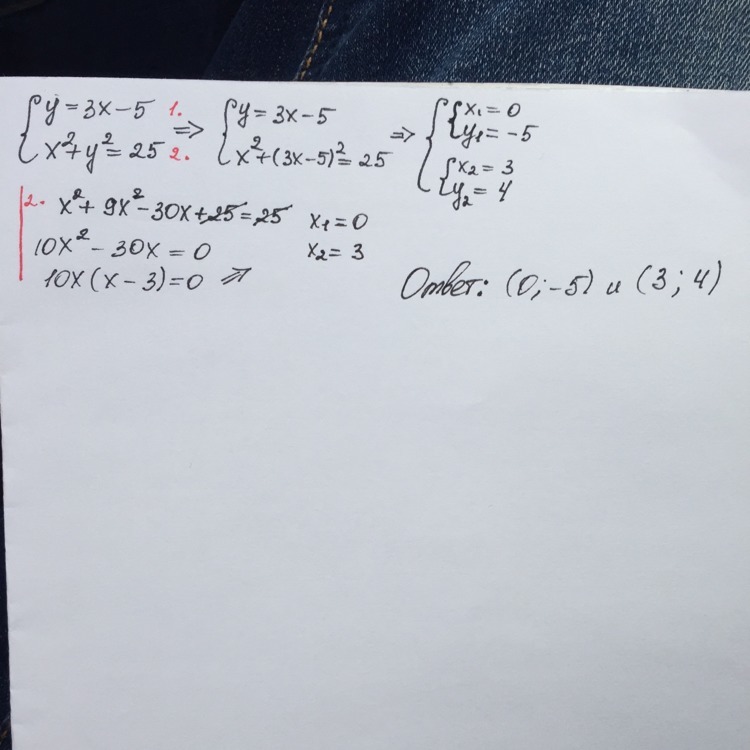 y = 3x - 5 1. => y = 3x - 5 => x₁ = 0
x² + y² = 25 2. x² + (3x - 5)² = 25 y₁ = -5
x₂ = 3
y₂ = 4
2. x² + 9x² - 30x + 25 = 25 x₁ = 0
10x² - 30x = 0 x₂ = 3
10x (x - 3) = 0 =>
Ответ: (0; -5) и (3; 4)